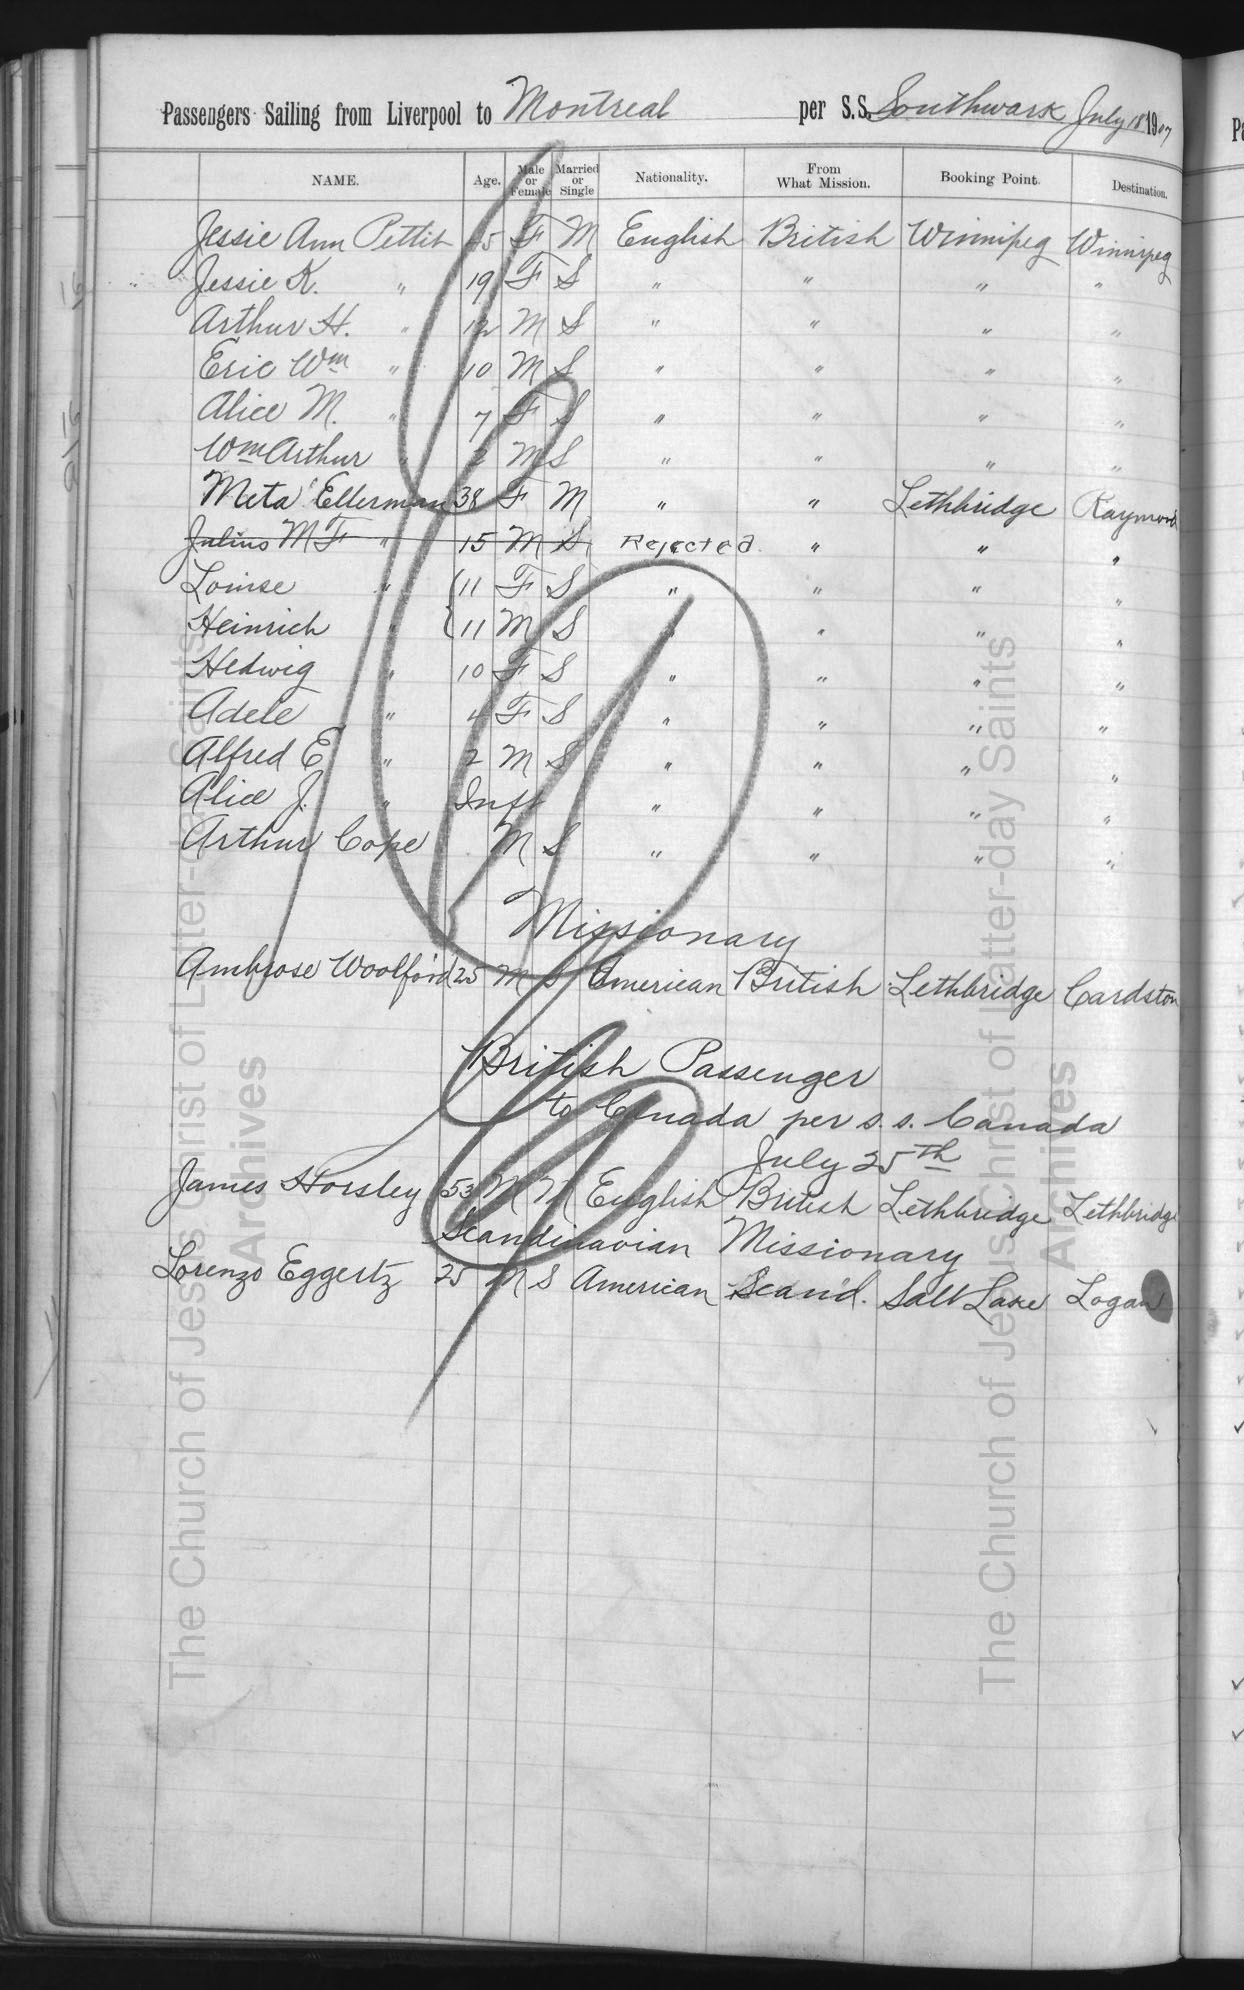 Passengers Sailing from Liverpool to Montreal per S.S. Southwark July 18 1907
NAME. Age. Male or Female Married or Single Nationality. From What Mission. Booking Point. Destination.
Jessie Ann Pettit 45 F M English British Winnipeg Winnipeg
Jessie K. " 19 F S " " " "
Arthur H. " 12 M S " " " "
Eric Wm " 10 M S " " " "
Alice M. " 7 F S " " " "
Wm Arthur " 2 M S " " " "
Meta Ellerman 38 F M " " Lethbridge Raymond
Julius M F " 15 M S Rejected " " "
Louise " 11 F S " " " "
Heinrich " 11 M S " " " "
Hedwig " 10 F S " " " "
Adele " 4 F S " " " "
Alfred E " 2 M S " " " "
Alice J. " Inft " " " "
Arthur Cope M S " " " "
Missionary
Ambrose Woolford 25 M S American British Lethbridge Cardston
British Passenger
to Canada per s.s. Canada
July 25th
James Horsley 53 M M English British Lethbridge Lethbridge
Scandinavian Missionary
Lorenzo Eggertz 25 M S American Scand. Salt Lake Logan
The Church of Jesus Christ of Latter-day Saints
Archives
The Church of Jesus Christ of Latter-day Saints
Archives